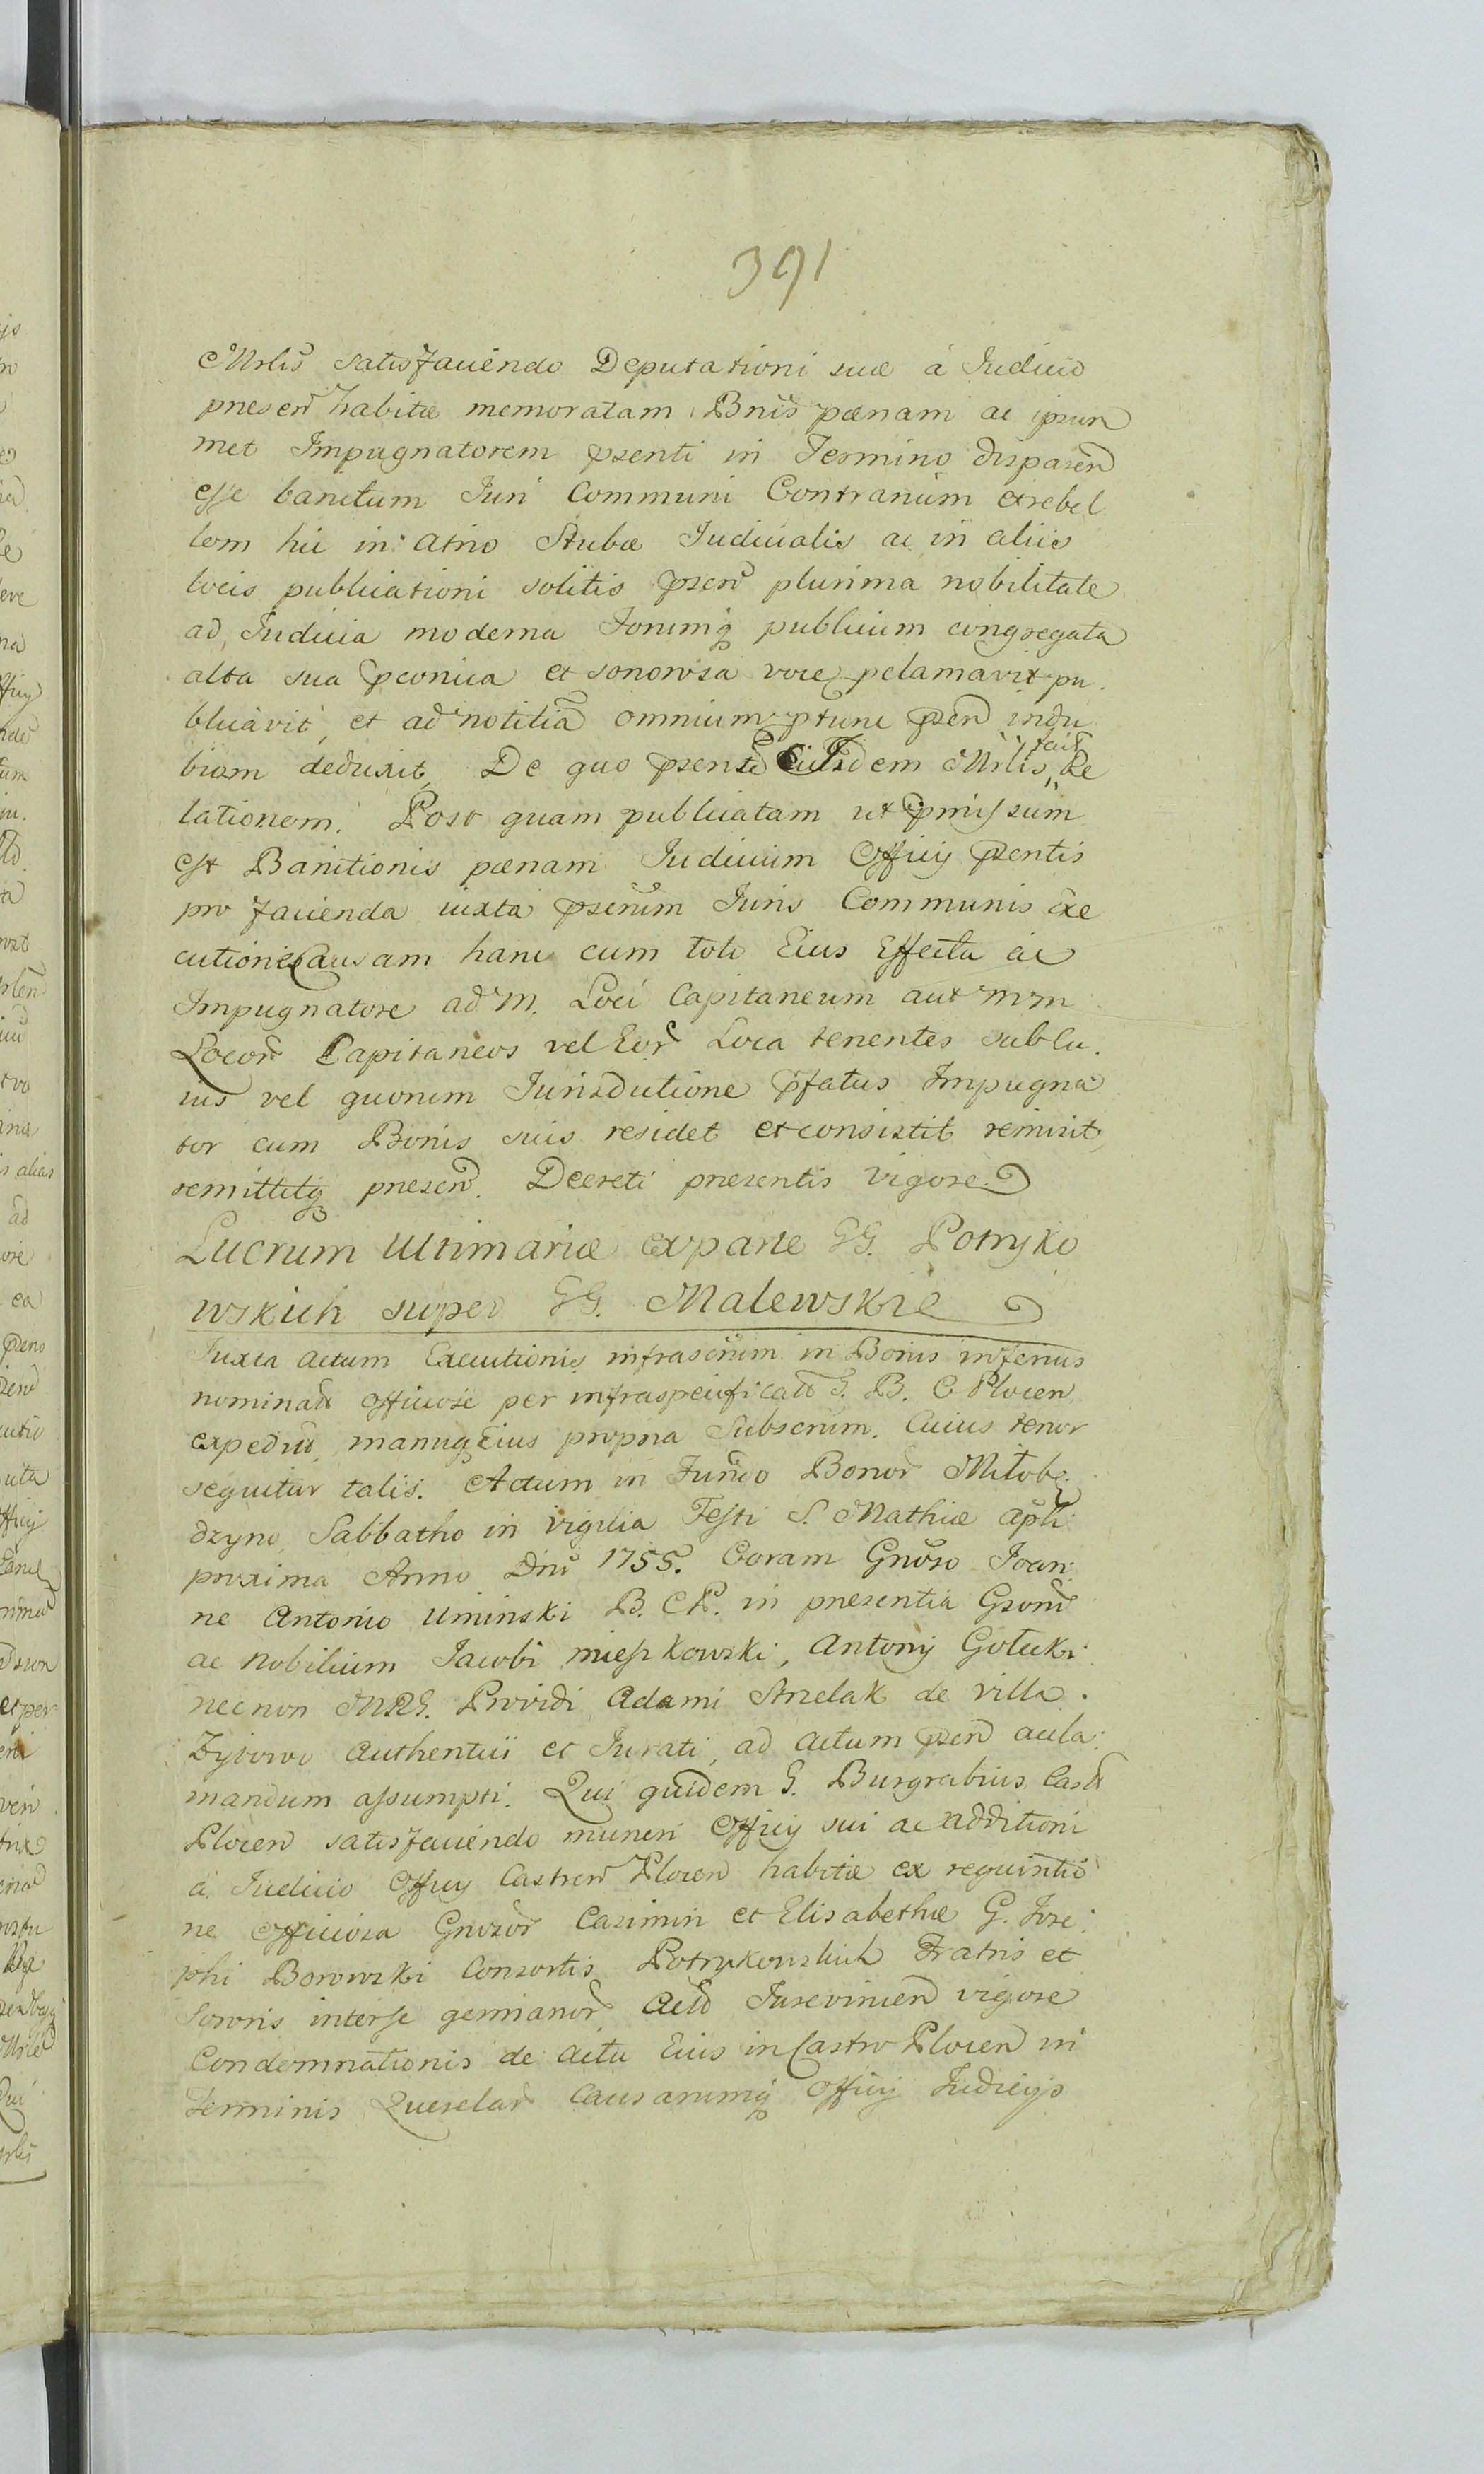 391
Mrlis satisfaciendo Deputationi suæ à Iudicio
presen habitæ memoratam Bnis pœnam ac ipsum
met Impugnatorem psenti in Termino disparen
esse banitum Iuri Communi Contrarium et rebel
lem hic in Atrio Stubæ Iudicialis ac in aliis
locis publicationi solitis psen plurima nobilitate
ad Iudicia moderna Forumq publicum congregata
alta sua pconica et sonorosa voce pclamavit pu
blicavit, et ad notitiã omnium ptunc psen indu
biam deduxit, De quo psente Eiusdem Mrlis fecit Re
lationem. Post quam publicatam ut pmissum
est Banitionis pœnam Iudicium Officij psentis
pro facienda iuxta pscrium Iuris Communis Exe
cutione Causam hanc cum toto Eius Effectu ac
Impugnatore ad M. Loci Capitaneum aut MM
Locor Capitaneos vel Eor Loca tenentes sub cu
ius vel quorum Iurisdictione pfatus Impugna
tor cum Bonis suis residet et consistit remisit,
remittitq presen. Decreti presentis vigore
Lucrum Ultimariæ ex parte GG. Potryko
wskich super GG. Malewskie
Iuxta Actum Executionis infrascrium in Bonis inferius
nominatt Officiose per infraspecificatt G. B. C Plocen
expeditt, manuq Eius propria Subscrium. Cuius tenor
sequitur talis. Actum in Fundo Bonor Miłobę
dzyno Sabbatho in Vigilia Festi S. Mathiæ Apli
proxima Anno Dni 1755. Coram Gnoso Ioan
ne Antonio Uminski B. C P. in presentia Gsorum
ac Nobilium Iacobi Mieszkowski, Antonij Gołecki
nec non MRG. Providi Adami Strzelak de Villa
Zyborowo Authentici et Iurati, ad Actum psen accla
mandum assumpti. Qui quidem G. Burgrabius Castr
Plocen satisfaciendo muneri Officij sui ac Additioni
à Iudicio Officij Castren Plocen habitæ ex requisitio
ne Officiosa Gnosor Casimiri et Elisabethæ G. Iose
phi Borowski Consortis Potrykowskich Fratris et
Sororis inter se germanor Actt Iurevincen vigore
Condemnationis de Actu Eius in Castro Plocen in
Terminis Querelar Causarumq Officij Iudicijs